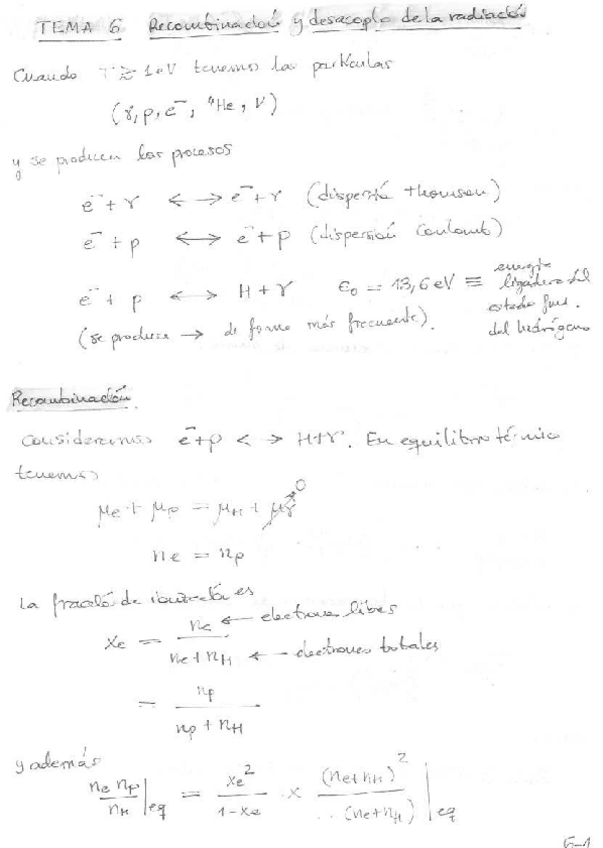 TEMA 6 Recombinación y desacoplo de la radiación
Cuando T ≳ 1 eV tenemos las partículas
(γ, p, e⁻, ⁴He, ν)
y se producen los procesos
e⁻ + γ ⟷ e⁻ + γ (dispersión Thomson)
e⁻ + p ⟷ e⁻ + p (dispersión Coulomb)
e⁻ + p ⟷ H + γ ε₀ = 13,6 eV ≡ energía ligadura del estado fund. del hidrógeno
(se produce → de forma más frecuente).
Recombinación
Consideramos e⁻ + p ⟷ H + γ. En equilibrio térmico
tenemos
μe + μp = μH + μγ → 0
ne = np
La fracción de ionización es
xe = ne / (ne + nH) ← electrones libres ← electrones totales
= np / (np + nH)
y además
ne np / nH |eq = xe² / (1 - xe) × (ne + nH)² / (ne + nH) |eq
6-1